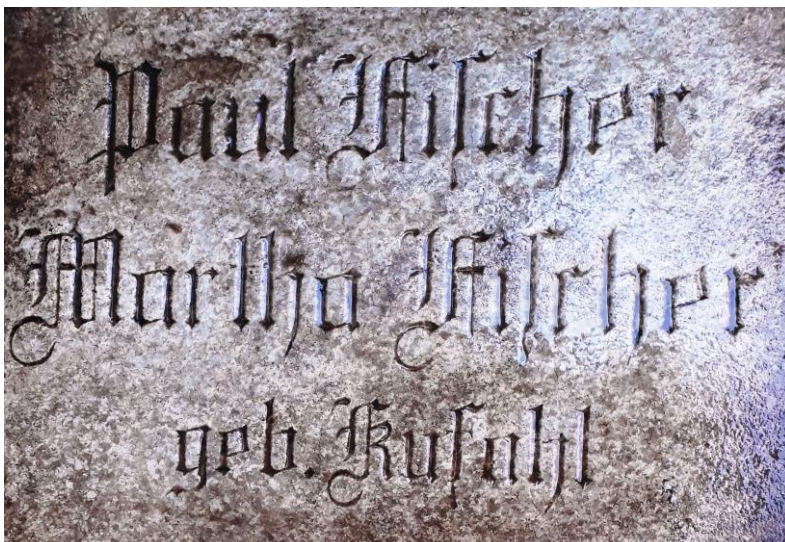 Paul Fiſcher
Martha Fiſcher
geb. Kufahl